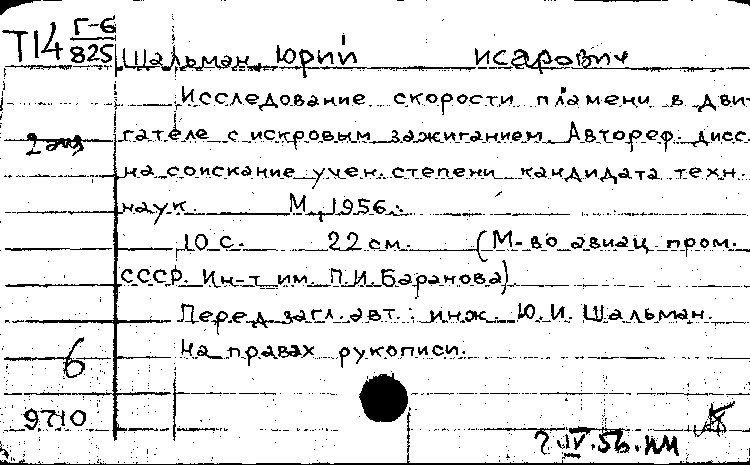 Т14 Г-6
825
Шальман, Юрий Исарович
Исследование скорости пламени в дви-
2 экз
гателе с искровым зажиганием. Автореф. дисс.
на соискание учен. степени кандидата техн.
наук. М., 1956.
10 с. 22 см. (М-во авиац. пром.
СССР. Ин-т им. П.И. Баранова)
Перед загл. авт.: инж. Ю.И. Шальман.
На правах рукописи.
6
9710
2.IV.56.